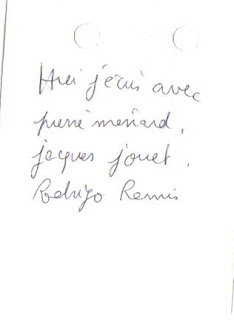 j'écris avec
pierre ménard,
jacques jouet.
Rodrigo Remis